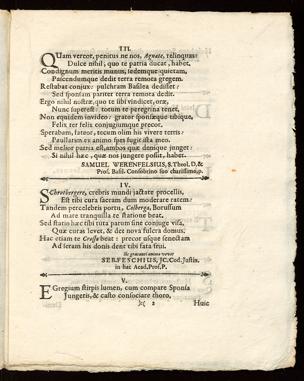 III.
QUam vereor, penitus ne nos, Agnate, relinquas!
Dulce nihil, quo te patria ducat, habet.
Condignum meritis munus, sedemque quietam,
Pascendumque dedit terra remota gregem.
Restabat conjux: pulchram Basilea dedisset:
Sed sponsam pariter terra remota dedit.
Ergo nihil nostræ, quo te sibi vindicet, oræ,
Nunc superest: totum te peregrina tenet.
Non equidem invideo: grator sponsæque tibique,
Felix ter felix conjugiumque precor.
Sperabam, fateor, tecum olim his vivere terris:
Paullatim ex animo spes fugit ista meo.
Sed melior patria est, ambos quæ denique junget:
Si nihil hæc, quæ nos jungere possit, habet.
SAMUEL WERENFELSIUS, S. Theol. D. &
Prof. Basil. Consobrino suo charissimo, p.
IV.
SChrotbergere, crebris mundi jactate procellis,
Est tibi cura sacram dum moderare ratem:
Tandem percelebris portu, Colberga, Borussum
Ad mare tranquilla te statione beat.
Sed statio hæc tibi tuta parum sine conjuge visa,
Quæ curas levet, & det nova fulcra domus.
Hac etiam te beat: precor usque senectam
Ad seram his donis dent tibi fata frui.
Ita gratanti animo vovet
SERFESCHIUS, JC. Cod. Justin.
in hac Acad. Prof. P.
V.
EGregium stirpis lumen, cum compare Sponsa
Jungeris, & casto consociare thoro,
2 Huic